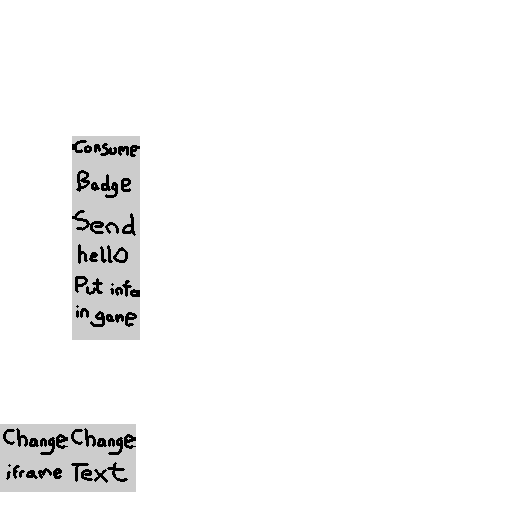 Consume
Badge
Send
hello
Put info
in game
Change Change
iframe Text